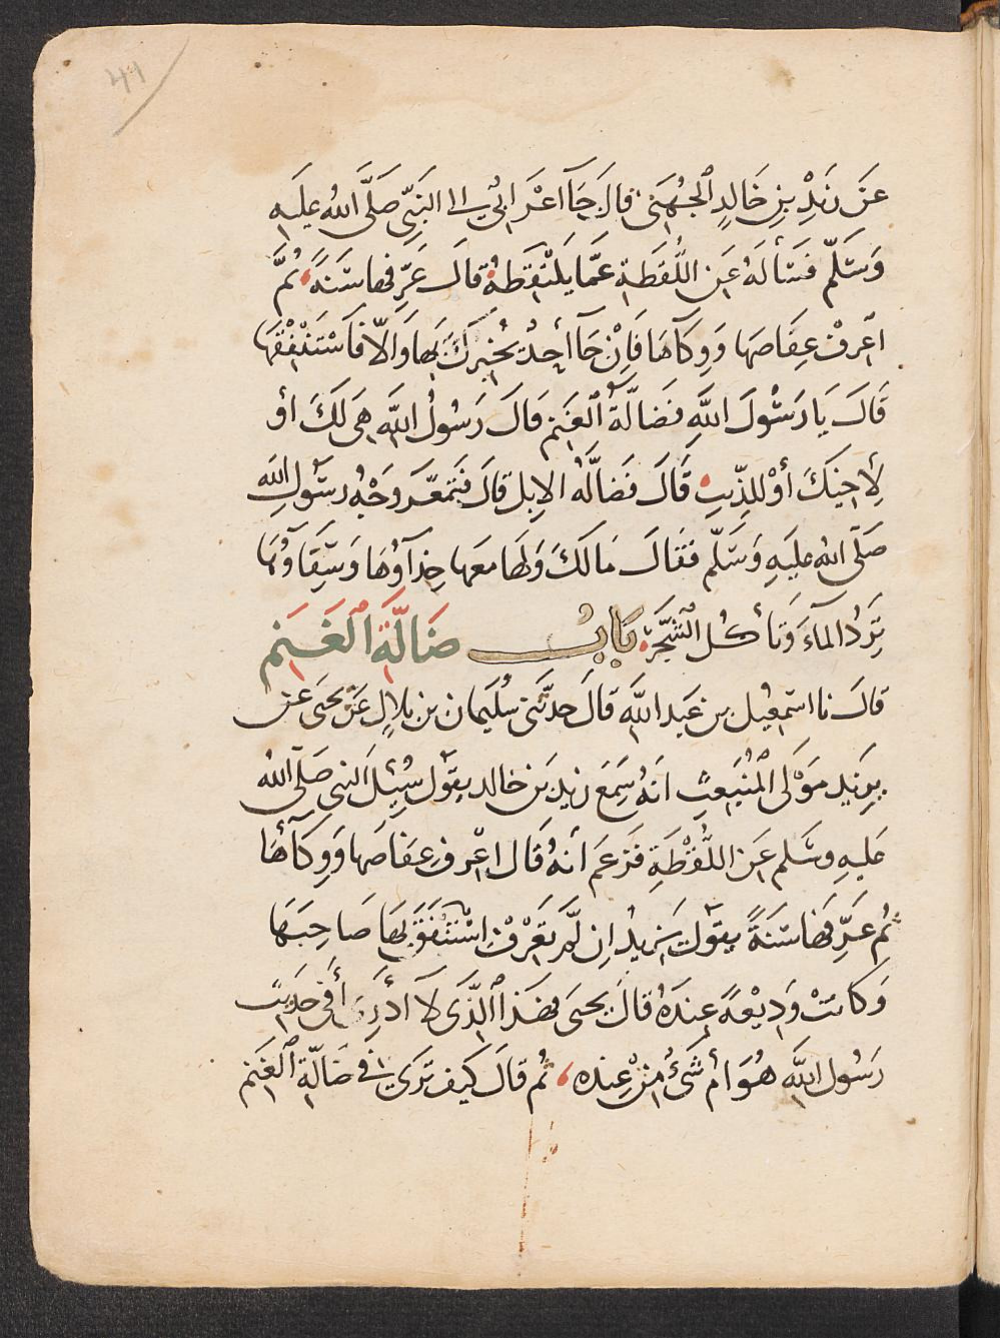 ٤١
عَن زَيْدِ بنِ خَالِدٍ الجُهَنِي قالَ جَآ اعْرَابيٌّ الى النَبِيّ صَلَّى اللهُ عليهِ
وَسَلَّم فسَألهُ عَن اللُّقطةِ عمَّا يَلتَقِطهُ قالَ عَرِّفها سَنَةً ثُمَّ
اعرفْ عِفَاصَها وَوِكآهَا فَإنْ جَآ أحدٌ يُخْبِركَ بِها وَالّا فَاسْتَنْفِقْهَا
قَالَ يَا رَسُولَ اللَّهِ فضَالَّةُ الغَنَمِ قالَ رَسُولُ اللَّه هِىَ لكَ أو
لِأخِيكَ أوْ لِلذّيبِ قَالَ فَضَالَّهُ الإبِلِ قالَ فتَمعَّرَ وَجْهُ رسُولِ الله
صَلَّى اللهُ عليهِ وَسَلّم فَقَالَ مَالكَ وَلَها معَها حِذآؤُهَا وَسِقَآوُهَا
تَرِدُ الماءَ وَتأكُل الشَّجَرَة بَابُ ضَالَّةِ الغَنَمِ
قالَ نا اسْمعِيل بن عَبد اللَّه قالَ حدثَني سُلَيمان بن بلالٍ عَن يحيَى عن
يزِيد مَوْلَى المُنْبَعِثِ انَهُ سَمِعَ زيد بَن خالد يقوْل سُئِلَ النبى صَلَّى اللهُ
عَليهِ وسَلم عَن اللُّقْطَةِ فَزعَم أنهُ قَال اعْرف عِفاصَها وَوِكآهَا
ثُم عَرِّفهَا سَنَةً يقوْل يَزيدُ اِن لَّم تعَرْفْ اسْتَنْفَقَ بِهَا صَاحِبَهَا
وَكانتْ وَدِيْعهً عِندَهُ قالَ يحيَى فهَذَا الذَّى لاَ أدرِى أفِى حَدِيث
رَسُول اللَّهِ هُوَ امْ شَىْءٌ مِنْ عِنده ثُم قالَ كَيف تَرَى فى ضَالّةِ الغَنَمِ